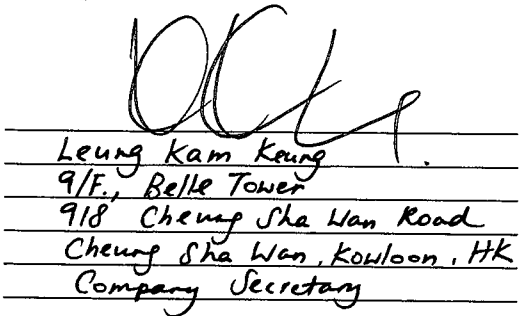 Leung Kam Keung
9/F., Belle Tower
918 Cheung Sha Wan Road
Cheung Sha Wan, Kowloon, HK
Company Secretary